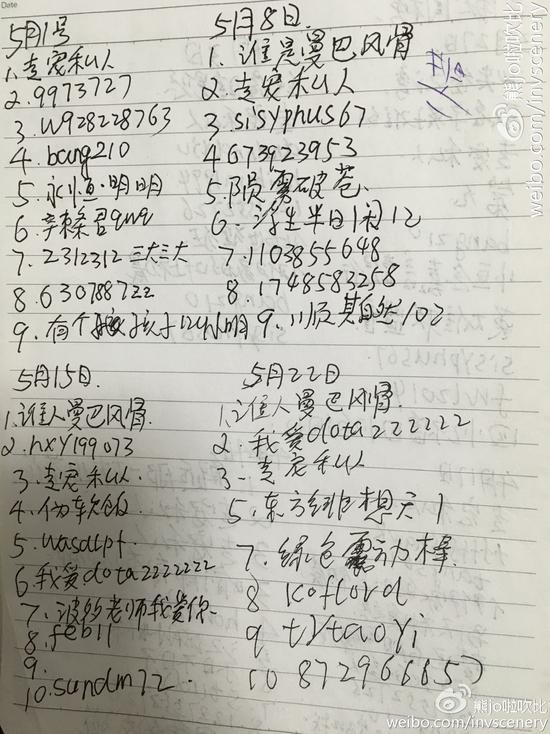 Date
5月1号
1.专宠私人
2.9973727
3.w928228763
4.bang210
5.永恒·明明
6.辛桑君quq
7.2312312 三大三大
8.630788722
9.有个孩子叫小明
5月8日
1.谁是曼巴风骨
2.专宠私人
3.sisyphus67
4 673923953
5.陨雾破苍
6.浮生半日闲12
7.1103855648
8.1748583258
9.顺其自然102
5月15日
1.谁人曼巴风骨
2.hxy199073
3.专宠私人
4.伪软饭
5.wasdlpf
6.我爱dota2222222
7.波多老师我爱你
8.feb11
9.
10.sundm72
5月22日
1.谁人曼巴风骨
2.我爱dota222222
3.专宠私人
5.东方绯想天1
7.绿色震动棒
8 koflord
9 tytaoyi
10 872966657
熊jo啦吹比
weibo.com/invscenery
熊jo啦吹比
weibo.com/invscenery